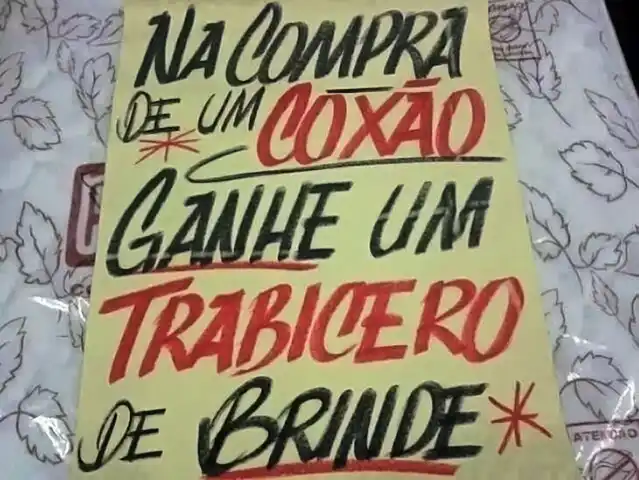 NA COMPRA
DE UM COXÃO
GANHE UM
TRABICERO
DE BRINDE
ATENÇÃO